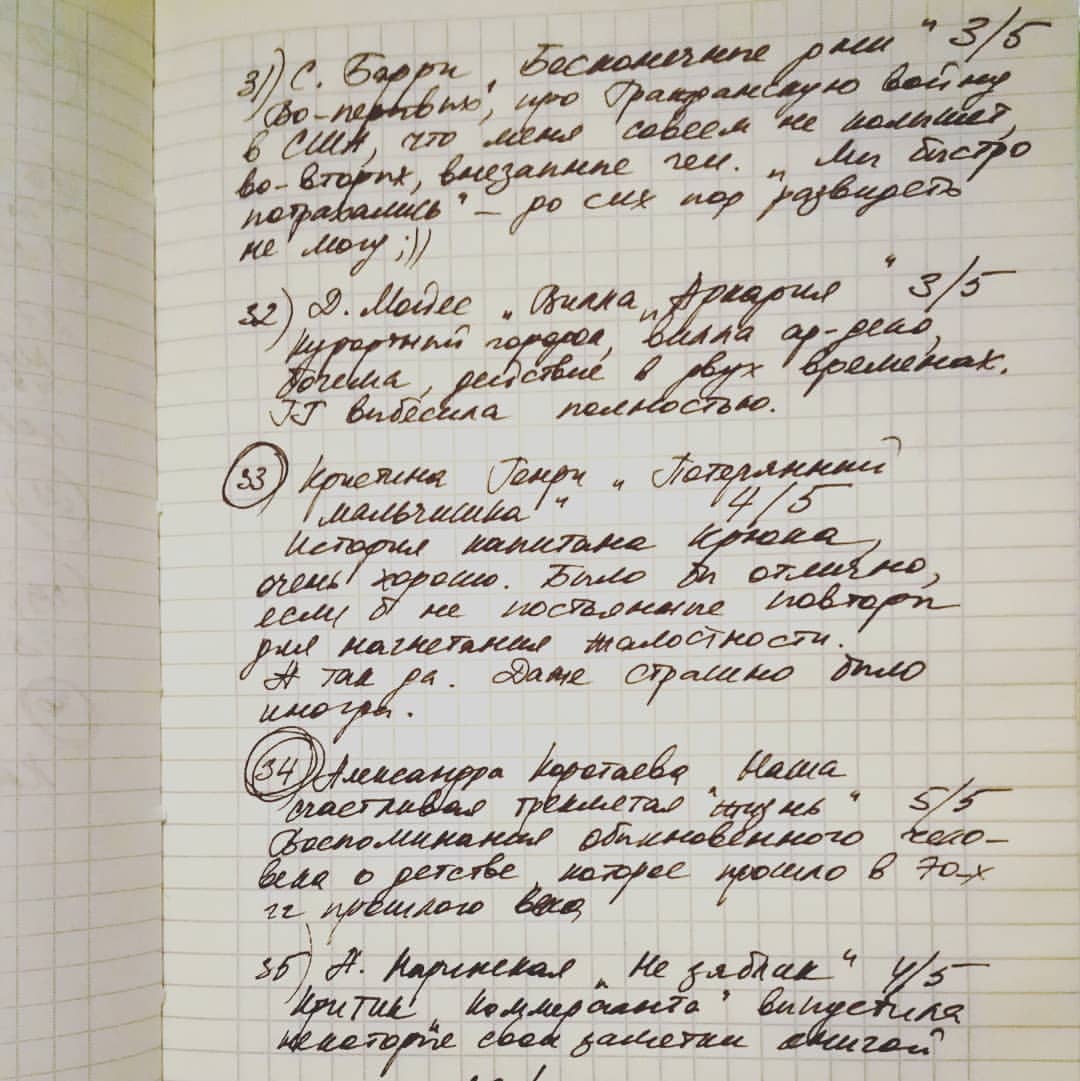 31) С. Барри „Бесконечные дни" 3/5
Во-первых, про Гражданскую войну
в США, что меня совсем не колышет,
во-вторых, внезапные геи. „Мы быстро
потрахались" – до сих пор развидеть
не могу ;))
32) Д. Мойес „Вилла „Аркадия" 3/5
Курортный городок, вилла ар-деко,
богема, действие в двух временах.
ГГ выбесила полностью.
33 Кристина Генри „Потерянный
мальчишка" 4/5
История капитана Крюка,
очень хорошо. Было бы отлично,
если б не постоянные повторы
для нагнетания жалостности.
А так да. Даже страшно было
иногда.
34 Александра Коротаева Наша
счастливая треклятая "жизнь" 5/5
Воспоминания обыкновенного чело-
века о детстве, которое прошло в 70-х
гг прошлого века
35) А. Наринская „Не зяблик" 4/5
Критик „Коммерсанта" выпустила
некоторые свои заметки книгой